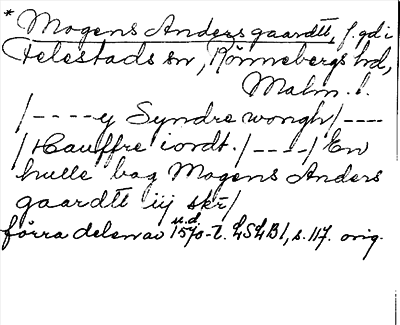 * Mogens Anders gaardtt, f. gd i
Felestads sn, Rönnebergs hd,
Malm. l.
/----y Syndre wongh/----
/Hauffre iordt./----/En
hulle bag Mogens Anders
gaardtt iij skr/
förra delen av u.d. 1570-t. LSLB1, s. 117. orig.